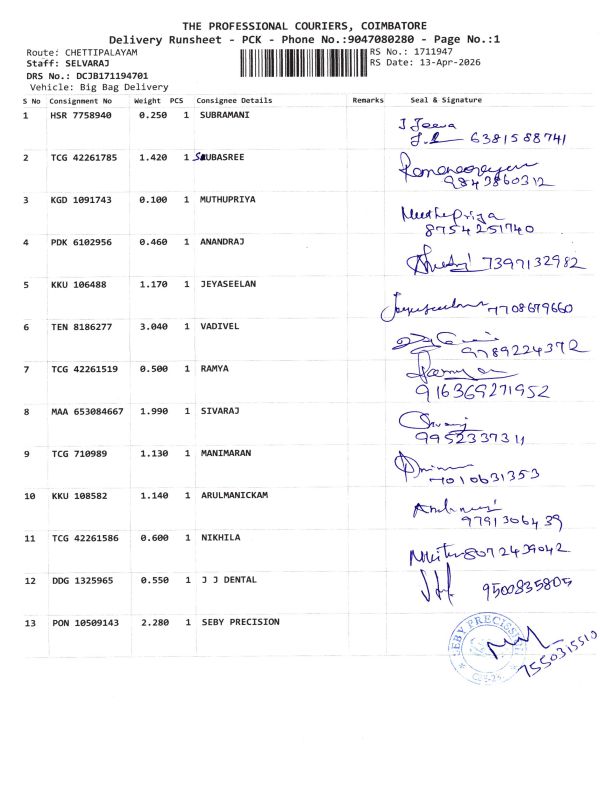 THE PROFESSIONAL COURIERS, COIMBATORE
Delivery Runsheet - PCK - Phone No.:9047080280 - Page No.:1
Route: CHETTIPALAYAM RS No.: 1711947
Staff: SELVARAJ RS Date: 13-Apr-2026
DRS No.: DCJB171194701
Vehicle: Big Bag Delivery
S No Consignment No Weight PCS Consignee Details Remarks Seal & Signature
1 HSR 7758940 0.250 1 SUBRAMANI J Jeeva
6381588741
2 TCG 42261785 1.420 1 SUBASREE
9843860312
3 KGD 1091743 0.100 1 MUTHUPRIYA Muthupriya
8754251740
4 PDK 6102956 0.460 1 ANANDRAJ 7397132982
5 KKU 106488 1.170 1 JEYASEELAN Jeyaseelan 7708679660
6 TEN 8186277 3.040 1 VADIVEL
9789224372
7 TCG 42261519 0.500 1 RAMYA
916369271952
8 MAA 653084667 1.990 1 SIVARAJ
9952337311
9 TCG 710989 1.130 1 MANIMARAN
7010631353
10 KKU 108582 1.140 1 ARULMANICKAM
9791306439
11 TCG 42261586 0.600 1 NIKHILA 8072439042
12 DDG 1325965 0.550 1 J J DENTAL 9500835805
13 PON 10509143 2.280 1 SEBY PRECISION SEBY PRECISSION
7550315510